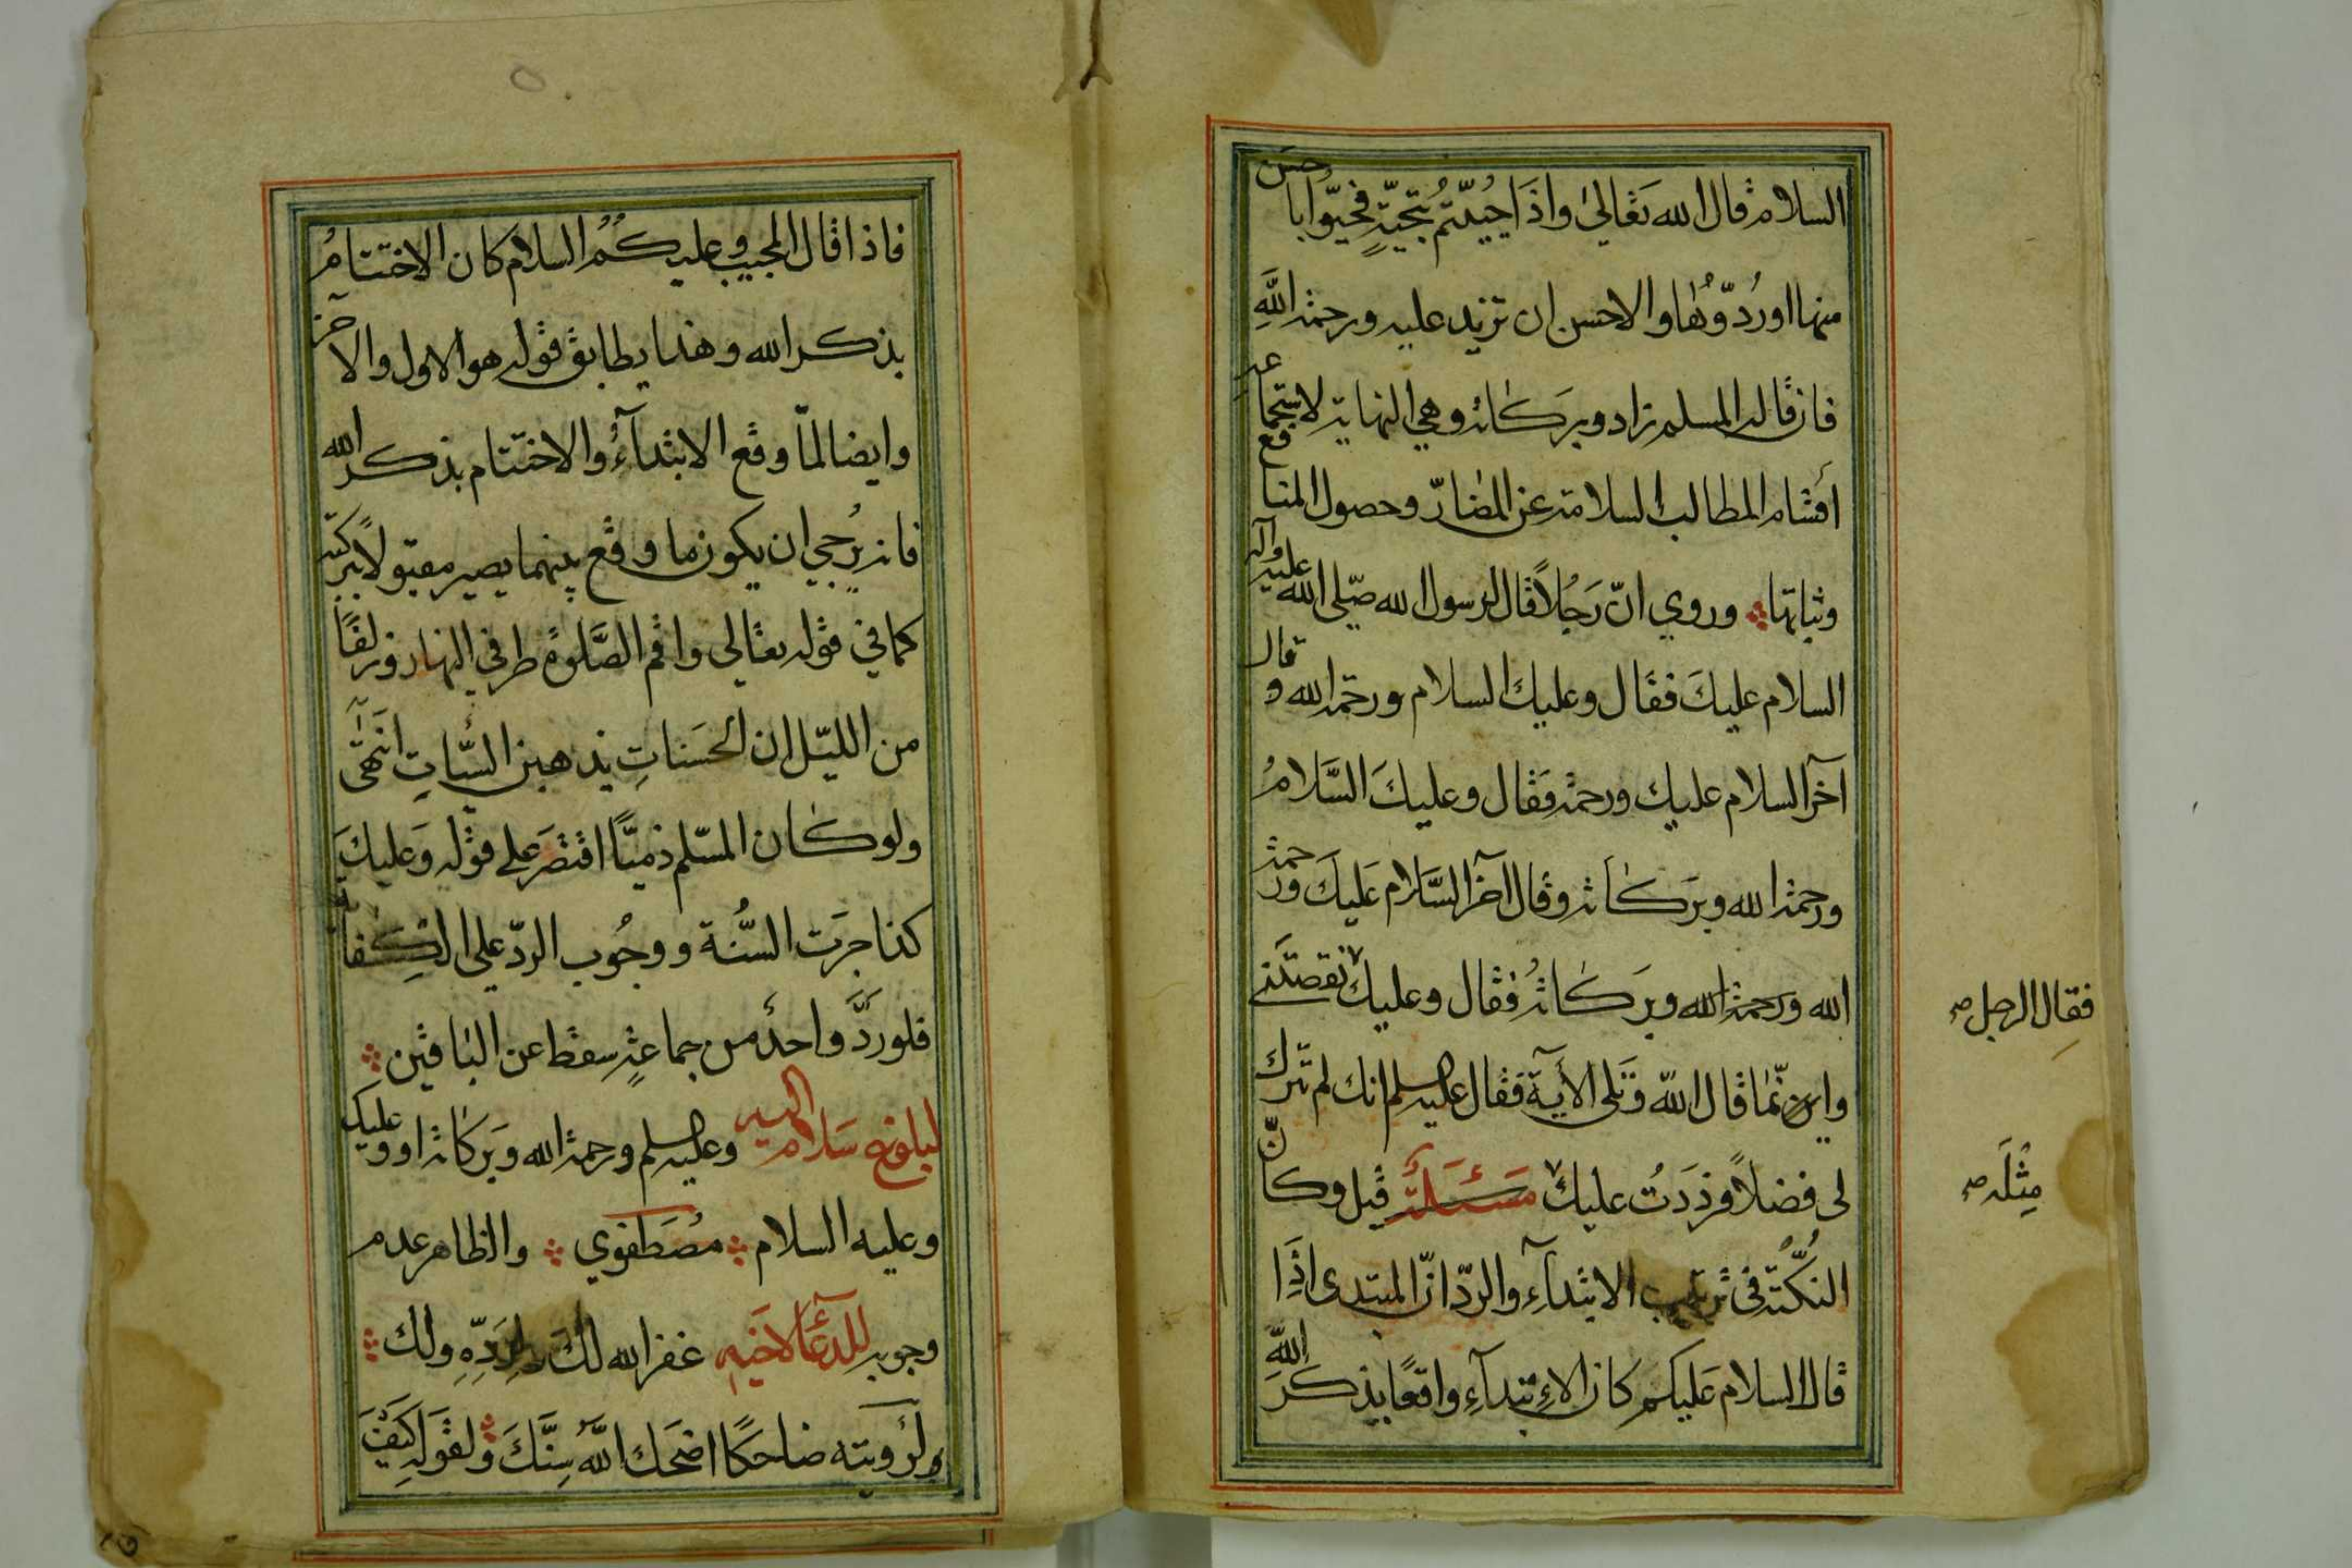 السلام قال الله تعالى واذا حييتم بتحية فحيّوا باحسن
منها او ردّوها والاحسن ان تزيد عليه ورحمة الله
فان قاله المسلم زاد وبركاته وهي النهاية لاستجماعه
أقسام المطالب السلامة عن المضارّ وحصول المنافع
وثباتها وروي انّ رجلاً قال لرسول الله صلّى الله عليه وآله
السلام عليك فقال وعليك السلام ورحمة الله وقال
آخر السلام عليك ورحمة فقال وعليك السَّلامُ
ورحمة الله وبركاته وقال آخر السَّلام عليك ورحمة
الله ورحمة الله وبركاته فقال وعليك نقصتني
فقال الرجل صح
واين ما قال الله وتلى الآية فقال عليه السلم انك لم تترك
لى فضلاً فرددتُ عليك مسئلة قيل وكانّ
مثله صح
النكتة فى ترتيب الابتدآء والردّ انّ المبتدى اذا
قال السلام عليكم كان الابتدآء واقعًا بذكر الله
فاذا قال المجيب وعليكم السلام كان الاختتامُ
بذكر الله وهذا يطابق قوله هو الاول والآخر
وايضا لمّا وقع الابتدآء والاختتام بذكر الله
فانه يرجي ان يكون ما وقع بينهما يصير مقبولاً ببركته
كما في قوله تعالي واقم الصَّلوة طرفي النهار وزلفًا
من الليل ان الحسناتِ يذهبن السّيّاتِ انتهى
ولو كان المسلم ذميًّا اقتصر على قوله وعليك
كذا جرت السُّنة ووجُوب الردّ على الكفاية
فلو ردَّ واحد من جماعةٍ سقط عن الباقين
لبلوغ سلام اليه وعليه السلم ورحمة الله وبركاته او وعليك
وعليه السلام مُصطفوي والظاهر عدم
وجوبه للدعآء لاخيه غفر الله لك لردّهِ ولك
ولرؤيته ضاحكًا اضحك اللّه سِنَّكَ ولقوله كيف